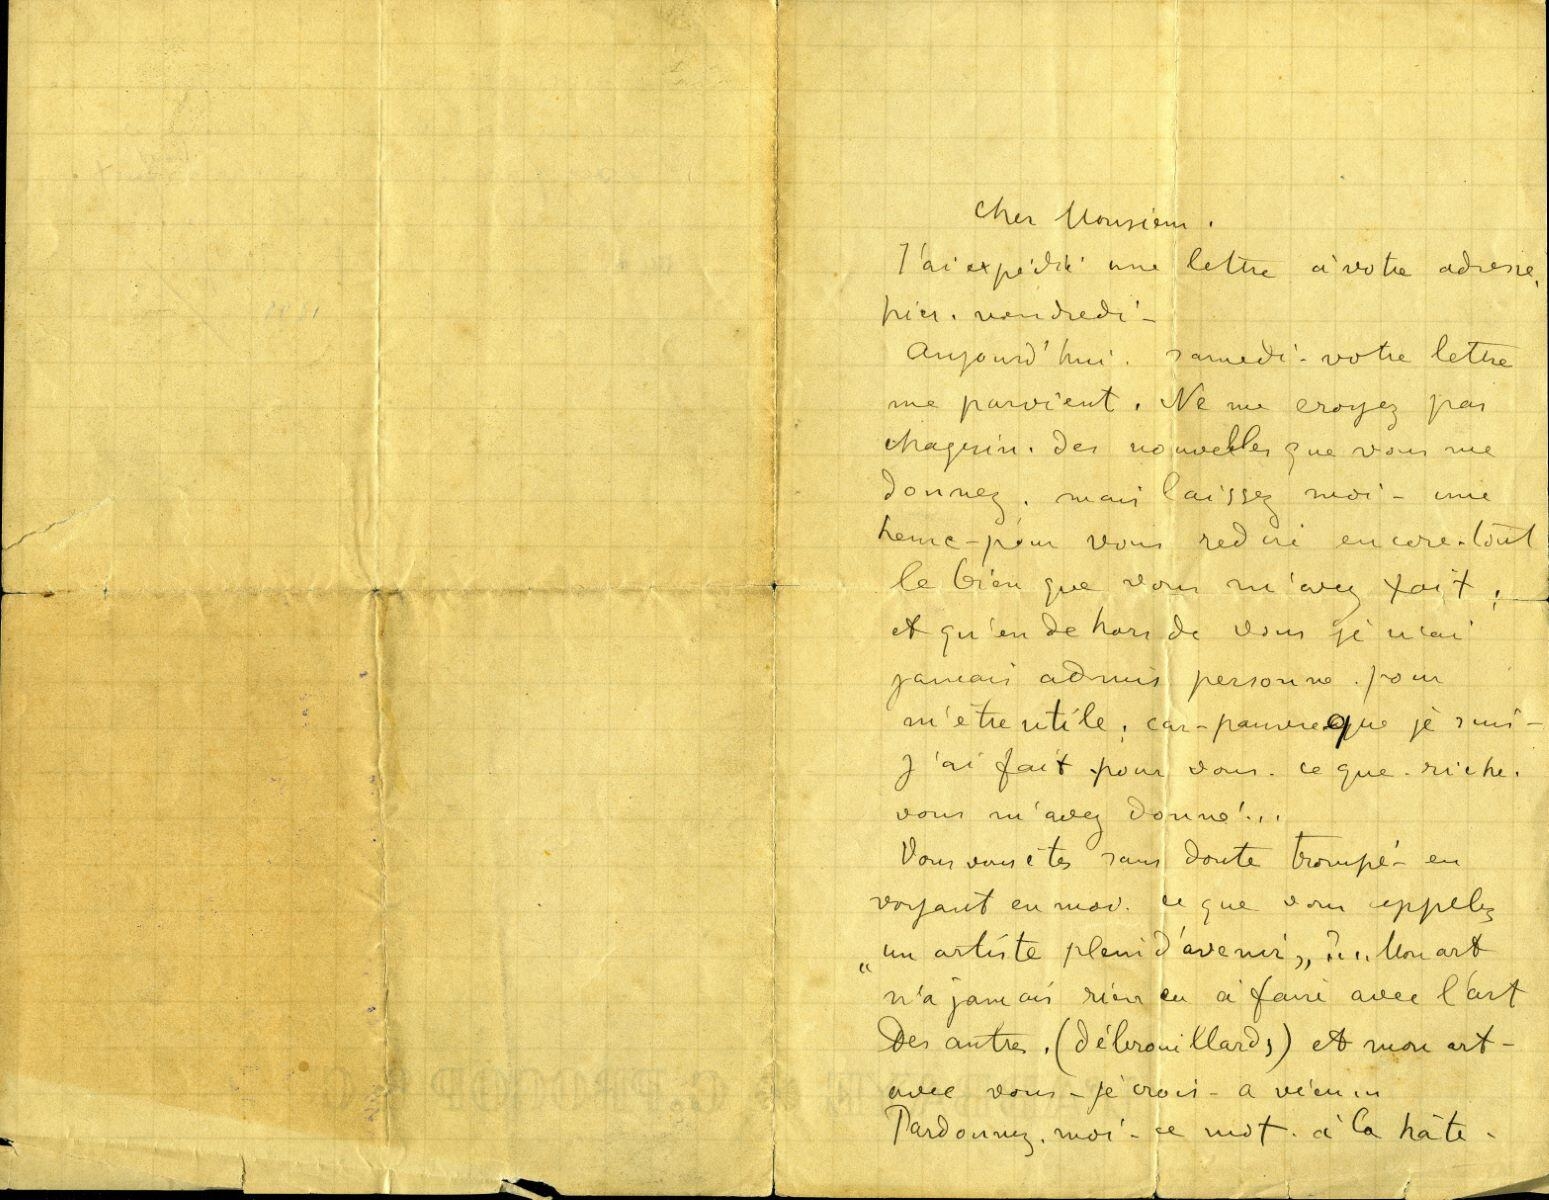 Cher Monsieur.
J'ai expédié une lettre à votre adresse,
hier. vendredi –
Aujourd'hui. samedi – votre lettre
me parvient. Ne me croyez pas
chagrin. des nouvelles que vous me
donnez. mais laissez moi – une
heure – pour vous redire encore. tout
le bien que vous m'avez fait,
et qu'en dehors de vous je n'ai
jamais admis personne. pour
m'être utile, car – pauvre que je suis –
J'ai fait pour vous. ce que. riche.
vous m'avez donné!...
Vous vous êtes sans doute trompé – en
voyant en moi. ce que vous appelez
„un artiste plein d'avenir„ ?... Mon art
n'a jamais rien eu à faire avec l'art
Des autres. (débrouillards) et mon art –
avec vous – je crois – a vécu...
Pardonnez. moi – ce mot. à la hâte –